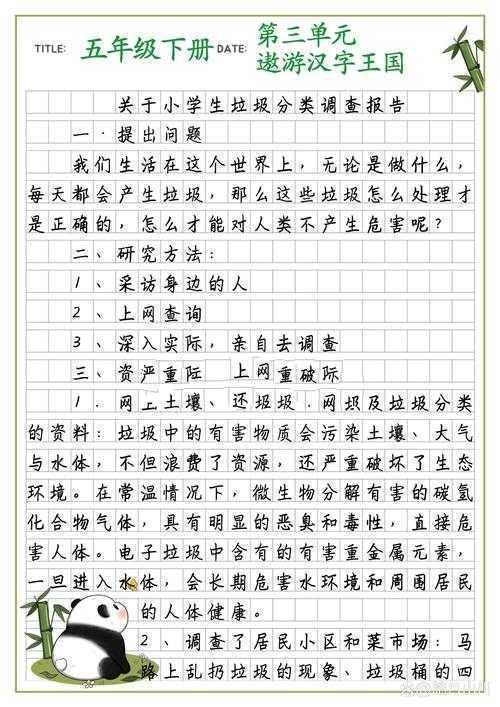 TITLE: 五年级下册 DATE: 第三单元
遨游汉字王国
关于小学生垃圾分类调查报告
一·提出问题
我们生活在这个世界上，无论是做什么，
每天都会产生垃圾，那么这些垃圾怎么处理才
是正确的，怎么才能对人类不产生危害呢？
二、研究方法：
1、采访身边的人
2、上网查询
3、深入实际，亲自去调查
三、资严重际 上网重破际
1．网上土壤、还圾圾．网坝及垃圾分类
的资料：垃圾中的有害物质会污染土壤、大气
与水体，不但浪费了资源，还严重破坏了生态
环境。在常温情况下，微生物分解有害的碳氢
化合物气体，具有明显的恶臭和毒性，直接危
害人体。电子垃圾中含有的有害重金属元素，
一旦进入水体，会长期危害水环境和周围居民
的人体健康。
2、调查了居民小区和菜市场：马
路上乱扔垃圾的现象、垃圾桶的四